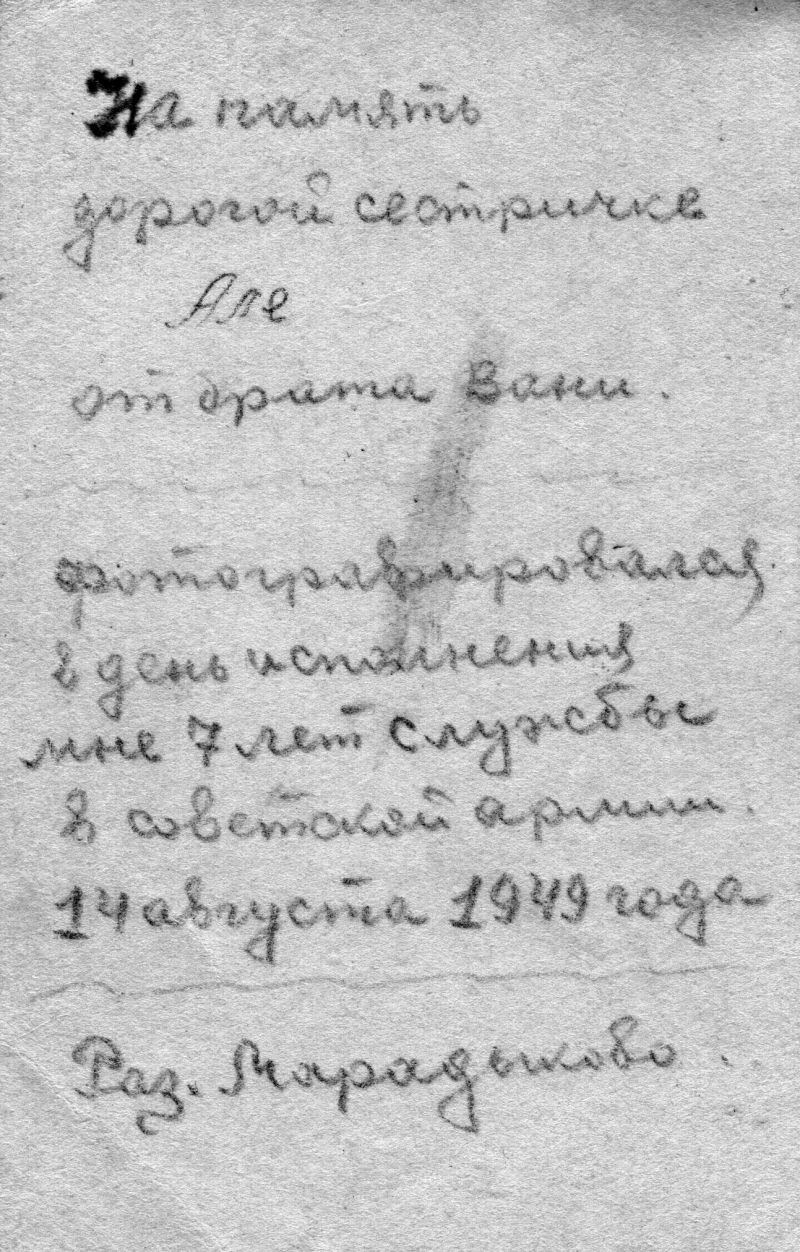 На память
дорогой сестричке
Але
от брата Вани.
фотографировался
в день исполнения
мне 7 лет службы
в советской армии.
14 августа 1949 года
Раз. Марадыково.